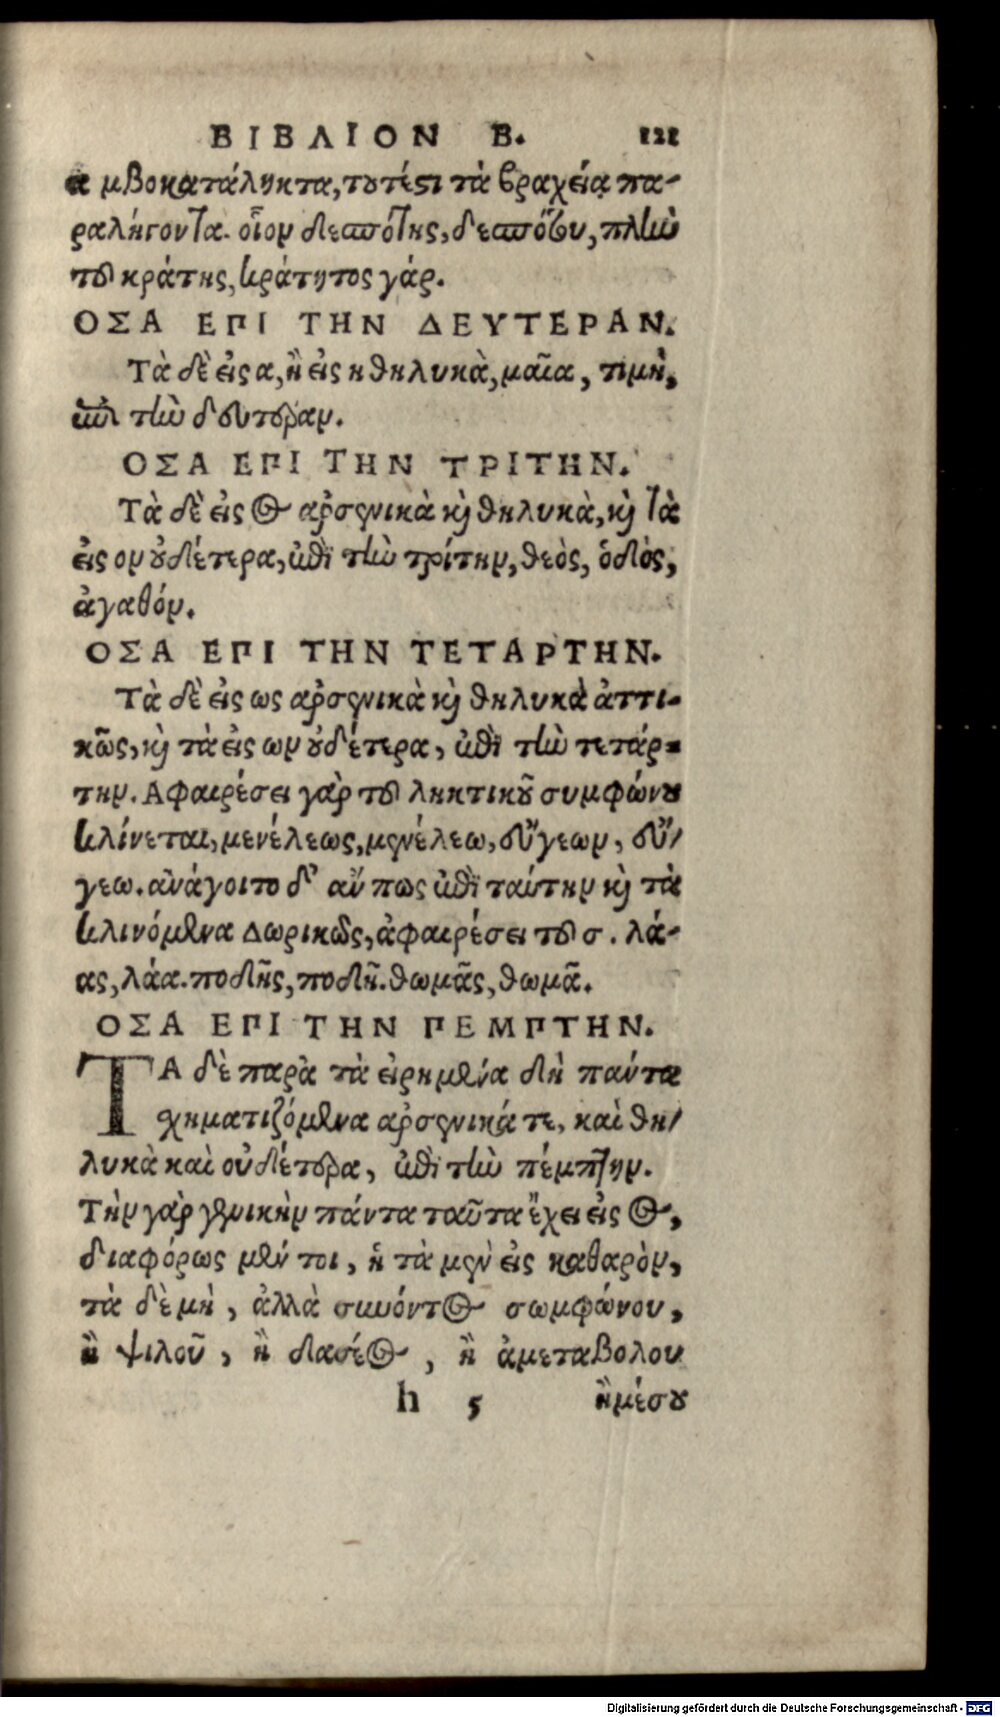 ΒΙΒΛΙΟΝ Β. 121
α μβοκατάληκτα, τουτέστι τὰ βραχεία πα-
ραλήγοντα. οἷον δεσπότης, δεσπότου, πλὴν
τοῦ κράτης, κράτητος γάρ.
ΟΣΑ ΕΠΙ ΤΗΝ ΔΕΥΤΕΡΑΝ.
Τὰ δὲ εἰς α, ἢ εἰς η θηλυκὰ, μαῖα, τιμὴ,
ἐπὶ τὴν δευτέραν.
ΟΣΑ ΕΠΙ ΤΗΝ ΤΡΙΤΗΝ.
Τὰ δὲ εἰς ος ἀρσενικὰ καὶ θηλυκὰ, καὶ τὰ
εἰς ον οὐδέτερα, ἐπὶ τὴν τρίτην, θεὸς, ὁδὸς,
ἀγαθόν.
ΟΣΑ ΕΠΙ ΤΗΝ ΤΕΤΑΡΤΗΝ.
Τὰ δὲ εἰς ως ἀρσενικὰ καὶ θηλυκὰ ἀττι-
κῶς, καὶ τὰ εἰς ων οὐδέτερα, ἐπὶ τὴν τετάρ-
την. Αφαιρέσει γὰρ τοῦ ληκτικοῦ συμφώνου
κλίνεται, μενέλεως, μενέλεω, εὔγεων, εὔ/
γεω. ἀνάγοιτο δ' ἄν πως ἐπὶ ταύτην καὶ τὰ
κλινόμενα Δωρικῶς, ἀφαιρέσει τοῦ σ. λά-
ας, λάα. ποδῆς, ποδῆ. θωμᾶς, θωμᾶ.
ΟΣΑ ΕΠΙ ΤΗΝ ΠΕΜΠΤΗΝ.
ΤΑ δὲ παρὰ τὰ εἰρημένα δὴ πάντα
σχηματιζόμενα ἀρσενικά τε, καὶ θη/
λυκὰ καὶ οὐδέτερα, ἐπὶ τὴν πέμπτην.
Τὴν γὰρ γενικὴν πάντα ταῦτα ἔχει εἰς ος,
διαφόρως μέν τοι, ἢ τὰ μὲν εἰς καθαρὸν,
τὰ δὲ μὴ, ἀλλὰ συνόντος σωμφώνου,
ἢ ψιλοῦ, ἢ δασέος, ἢ ἀμεταβολου
h 5 ἢ μέσου
Digitalisierung gefördert durch die Deutsche Forschungsgemeinschaft - DFG